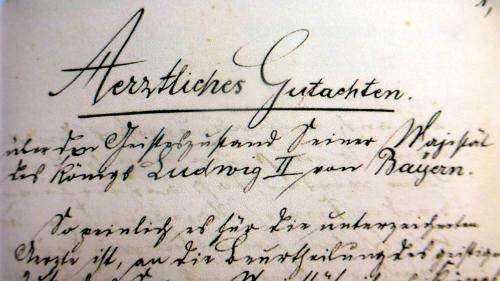 1,
Aerztliches Gutachten.
über den Geisteszustand Seiner Majestät
des Königs Ludwig II von Bayern.
So peinlich es für die unterzeichneten
Aerzte ist, an die Beurtheilung des geistigen
Majestät